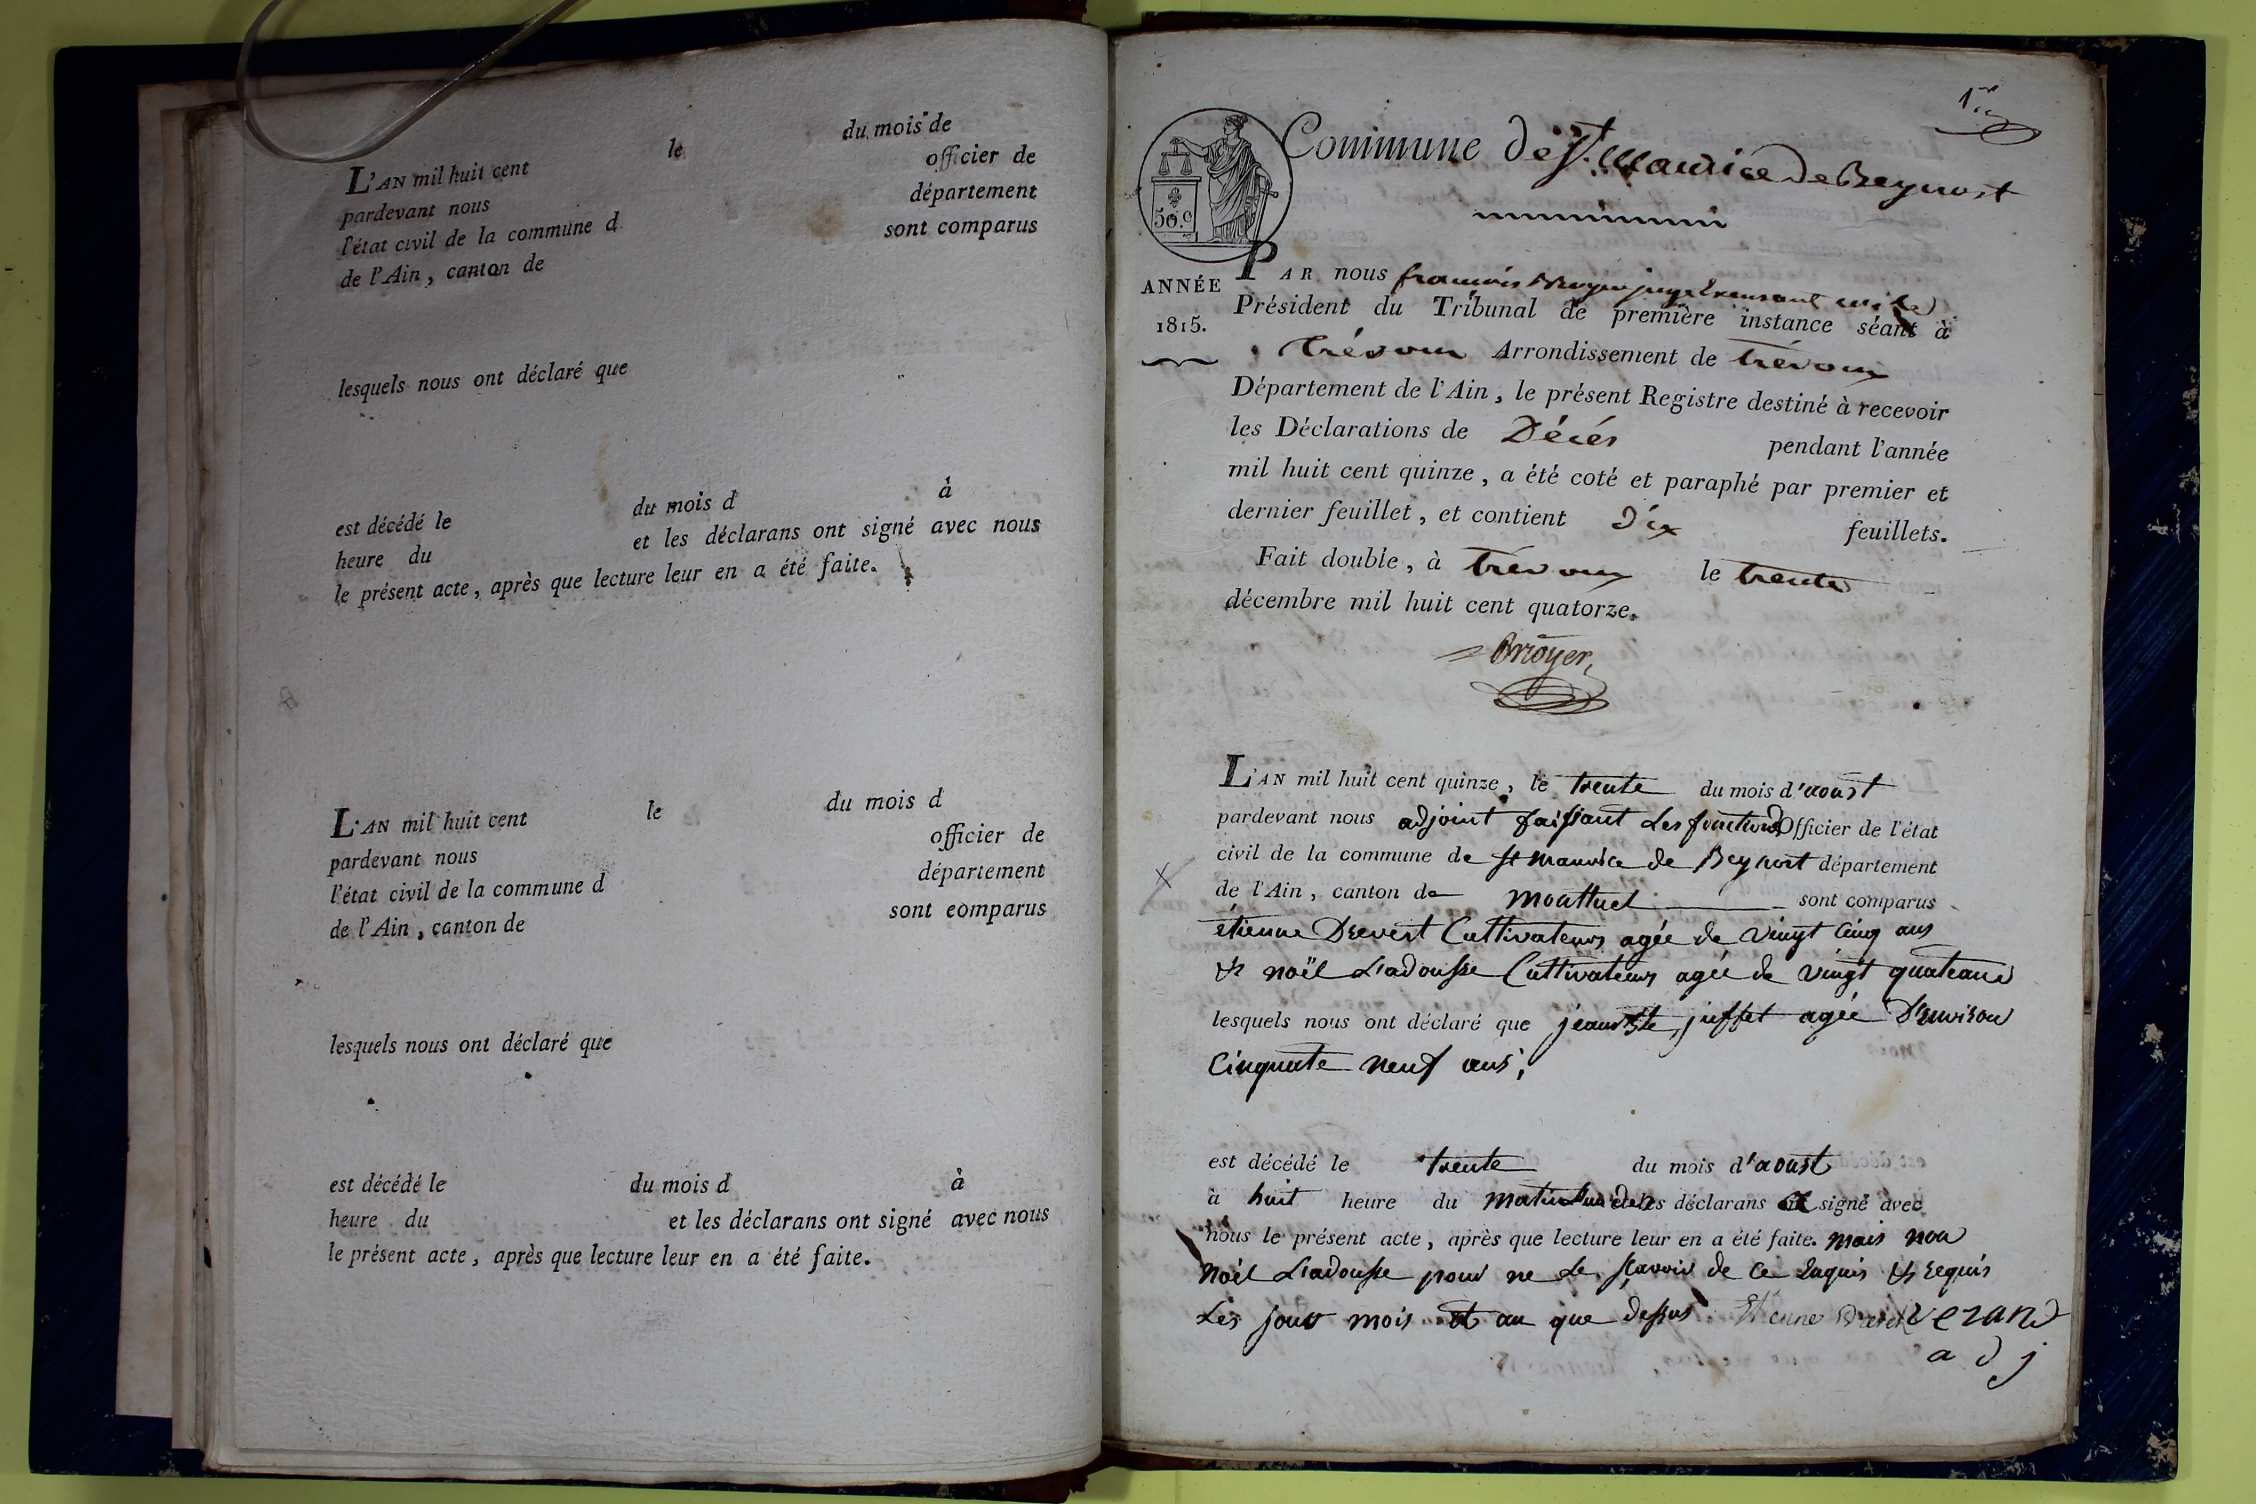 L'AN mil huit cent le du mois de
pardevant nous officier de
l'état civil de la commune d département
de l'Ain, canton de sont comparus
lesquels nous ont déclaré que
est décédé le du mois d à
heure du et les déclarans ont signé avec nous
le présent acte, après que lecture leur en a été faite.
L'AN mil huit cent le du mois d
pardevant nous officier de
l'état civil de la commune d département
de l'Ain, canton de sont comparus
lesquels nous ont déclaré que
est décédé le du mois d à
heure du et les déclarans ont signé avec nous
le présent acte, après que lecture leur en a été faite.
1er
50.c
Commune de St. Maurice de Beynost
ANNÉE
1815.
PAR nous françois Brioyer juge Exerçant
Président du Tribunal de première instance séant à
trévoux Arrondissement de trévoux
Département de l'Ain, le présent Registre destiné à recevoir
les Déclarations de Décés pendant l'année
mil huit cent quinze, a été coté et paraphé par premier et
dernier feuillet, et contient dix feuillets.
Fait double, à trévoux le trente
décembre mil huit cent quatorze.
Brioyer
L'AN mil huit cent quinze, le trente du mois d'aoust
pardevant nous adjoint faissant Les fonctions Officier de l'état
civil de la commune de st Maurice de Beynost département
de l'Ain, canton de Montluel sont comparus
étienne Drevet Cultivateurs agée de vingt Cinq ans
& noël Ladousse Cultivateurs agée de vingt quatre ans
lesquels nous ont déclaré que jean Bte juffet agée D'environ
Cinquante neuf ans,
est décédé le trente du mois d'aoust
à huit heure du matin des déclarans signé avec
nous le présent acte, après que lecture leur en a été faite. mais non
Noël Ladousse pour ne Le sçavoir de Ce Enquis & requis
Les jour mois et an que dessus Etienne Drevet verand
adj